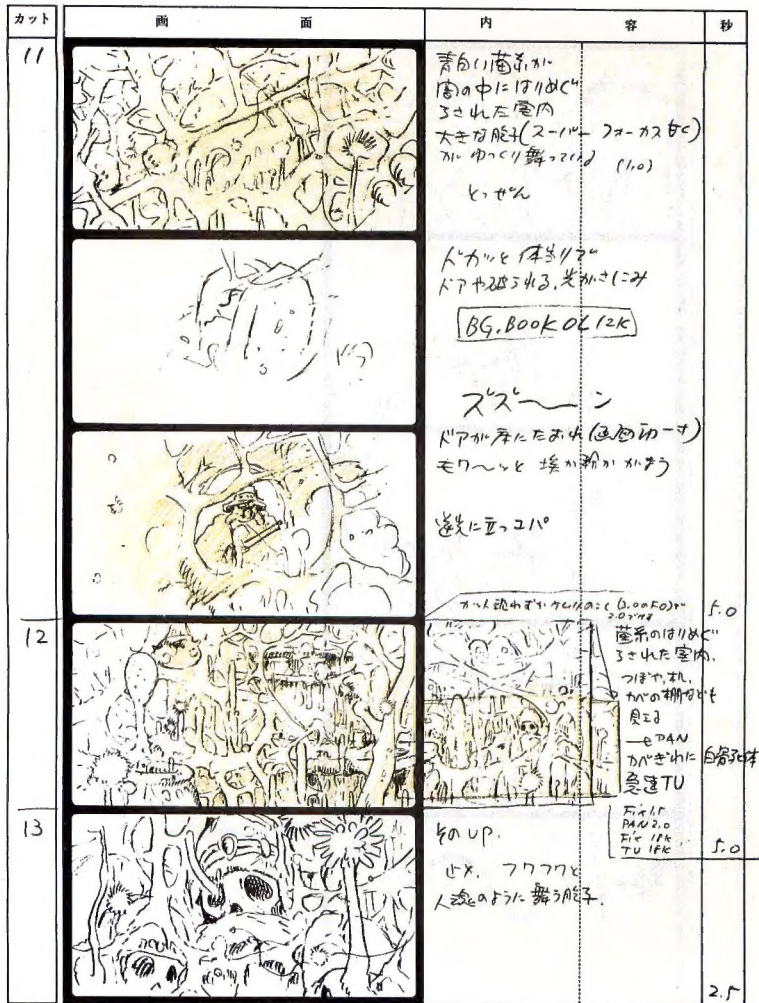 カット 画面 内容 秒
11
青白い菌糸が
闇の中にはりめぐ
らされた室内
大きな胞子(スーパー フォーカス甘く)
がゆっくり舞っている
(1.0)
とつぜん
ドカッと体当りで
ドアや破られる、光がさしこみ
BG.BOOK OL 12K
ズズ〜ーン
ドアが床にたおれ(画面動一寸)
モワ〜ッと埃か粉かがまう
逆光に立つユパ
カット
5.0
12
菌糸のはりめぐ
らされた室内、
つぼや、机、
かべの棚なども
見える
PAN
かべぎわに 白骨死体
急速TU
Fix 1.5
PAN 2.0
Fix 18K
TU 18K
5.0
13
そのUP.
止メ. フワフワと
人魂のように舞う胞子.
2.5